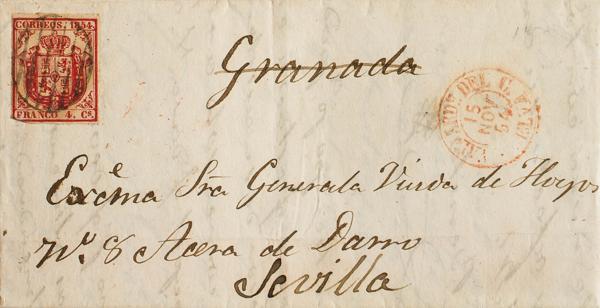 CORREOS. 1854.
FRANCO 4. Cs.
Granada
15
NOV
54
Exẽma Sra Generala Viuda de Hoyos
Nº. 8 Acera de Darro
Sevilla